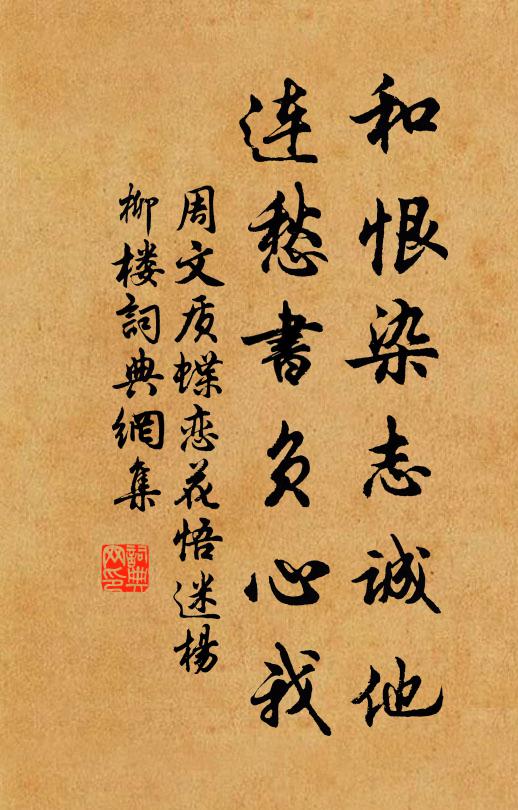 和恨染志诚他
连愁書负心我
周文质蝶恋花悟迷楊
柳楼詞典網集
詞典
网印